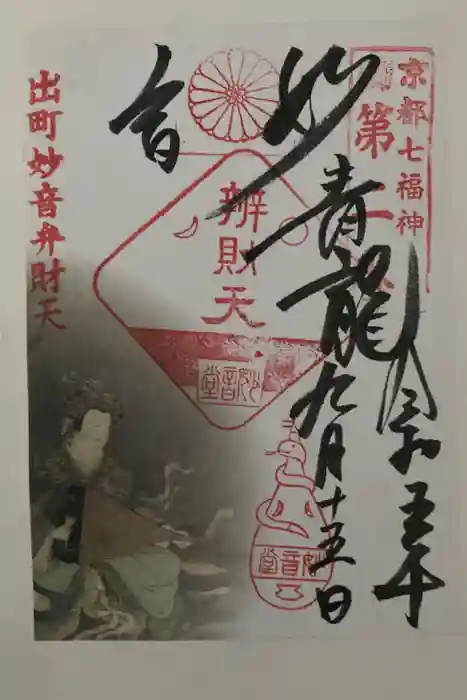 京都七福神
第二
令和五年
妙音
青龍
九月十五日
辨財天
妙音堂
妙音堂
出町妙音弁財天